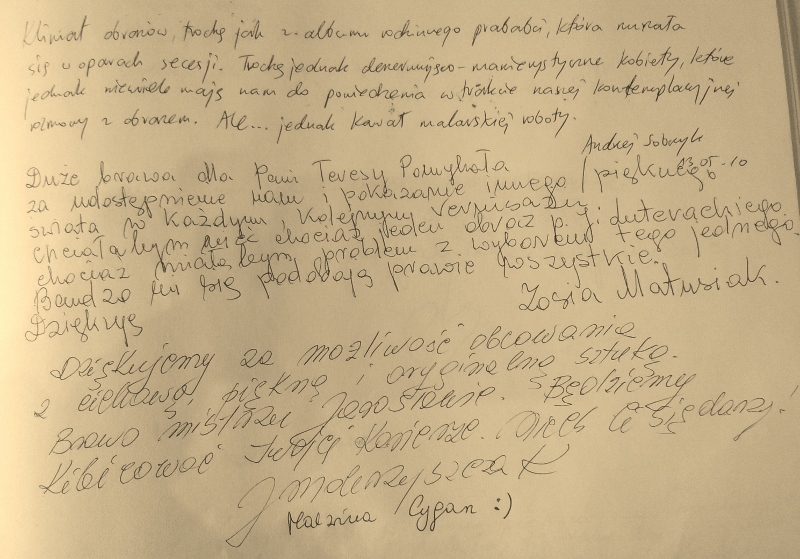 Klimat obrazów, trochę jak z albumu rodzinnego prababci, która nurzała
się w oparach secesji. Trochę jednak denerwująco-manierystyczne kobiety, które
jednak niewiele mają nam do powiedzenia w trakcie naszej kontemplacyjnej
rozmowy z obrazem. Ale... jednak kawał malarskiej roboty.
Andrzej Sobczyk
Duże brawa dla Pani Teresy
za udostępnienie nam i pokazanie innego / pięknego
świata w każdym, kolejnym
chciałabym mieć chociaż jeden obraz p. J.
chociaż miałabym problem z wyborem tego jednego.
Bardzo mi się podobają prawie wszystkie.
Dziękuję
Zosia Matusiak.
Dziękujemy za możliwość obcowania
z ciekawą, piękną i oryginalną sztuką.
Brawo mistrzu Jagosławie. Będziemy
kibicować Twojej karierze. Niech Ci się darzy!
Cygan :)